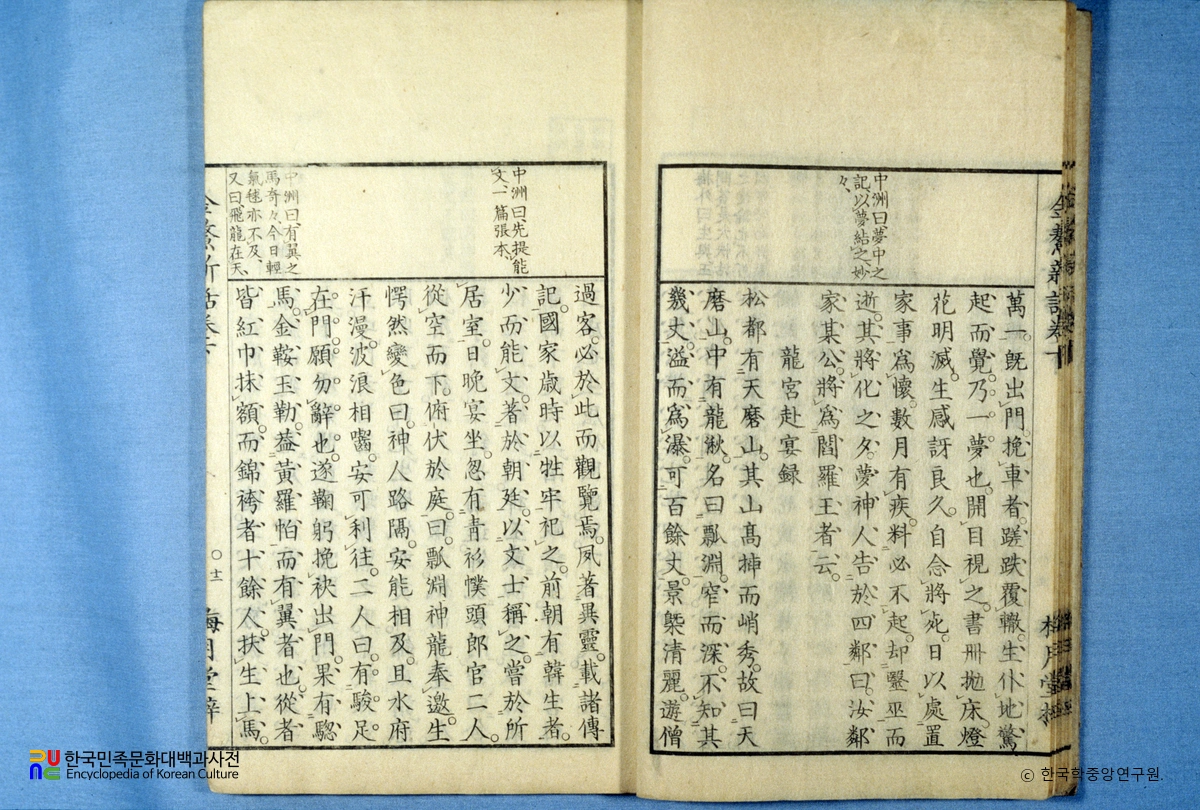 中洲曰、夢中之
記、以夢結之、妙
々、
萬一。既出門。挽車者。蹉跌覆轍。生仆地驚
起而覺。乃一夢也。開目視之。書冊抛床。燈
花明滅。生感訝良久。自念將死。日以處置
家事爲懷。數月有疾。料必不起。却醫巫而
逝。其將化之夕。夢神人告於四鄰曰。汝鄰
家某公。將爲閻羅王者云。
龍宮赴宴録
松都有天磨山。其山高揷而峭秀。故曰天
磨山。中有龍湫。名曰瓢淵。窄而深。不知其
幾丈。溢而爲瀑。可百餘丈。景槩清麗。遊僧
中洲曰、先提能
文、一篇張本、
過客。必於此而觀覽焉。夙著異靈。載諸傳
記。國家歳時以牲牢祀之。前朝有韓生者。
少而能文。著於朝廷。以文士稱之。嘗於所
居室。日晩宴坐。忽有青衫幞頭郎官二人。
從空而下。俯伏於庭曰。瓢淵神龍奉邀。生
愕然變色曰。神人路隔。安能相及。且水府
汗漫。波浪相囓。安可利往。二人曰。有駿足
在門。願勿辭也。遂鞠躬挽袂出門。果有驄
馬。金鞍玉勒。葢黃羅帕。而有翼者也。從者
皆紅巾抹額。而錦袴者十餘人。扶生上馬。
中洲曰、有翼之
馬奇々、今日輕
氣毬亦不及、
又曰、飛龍在天、
十二
한국민족문화대백과사전
Encyclopedia of Korean Culture
© 한국학중앙연구원.